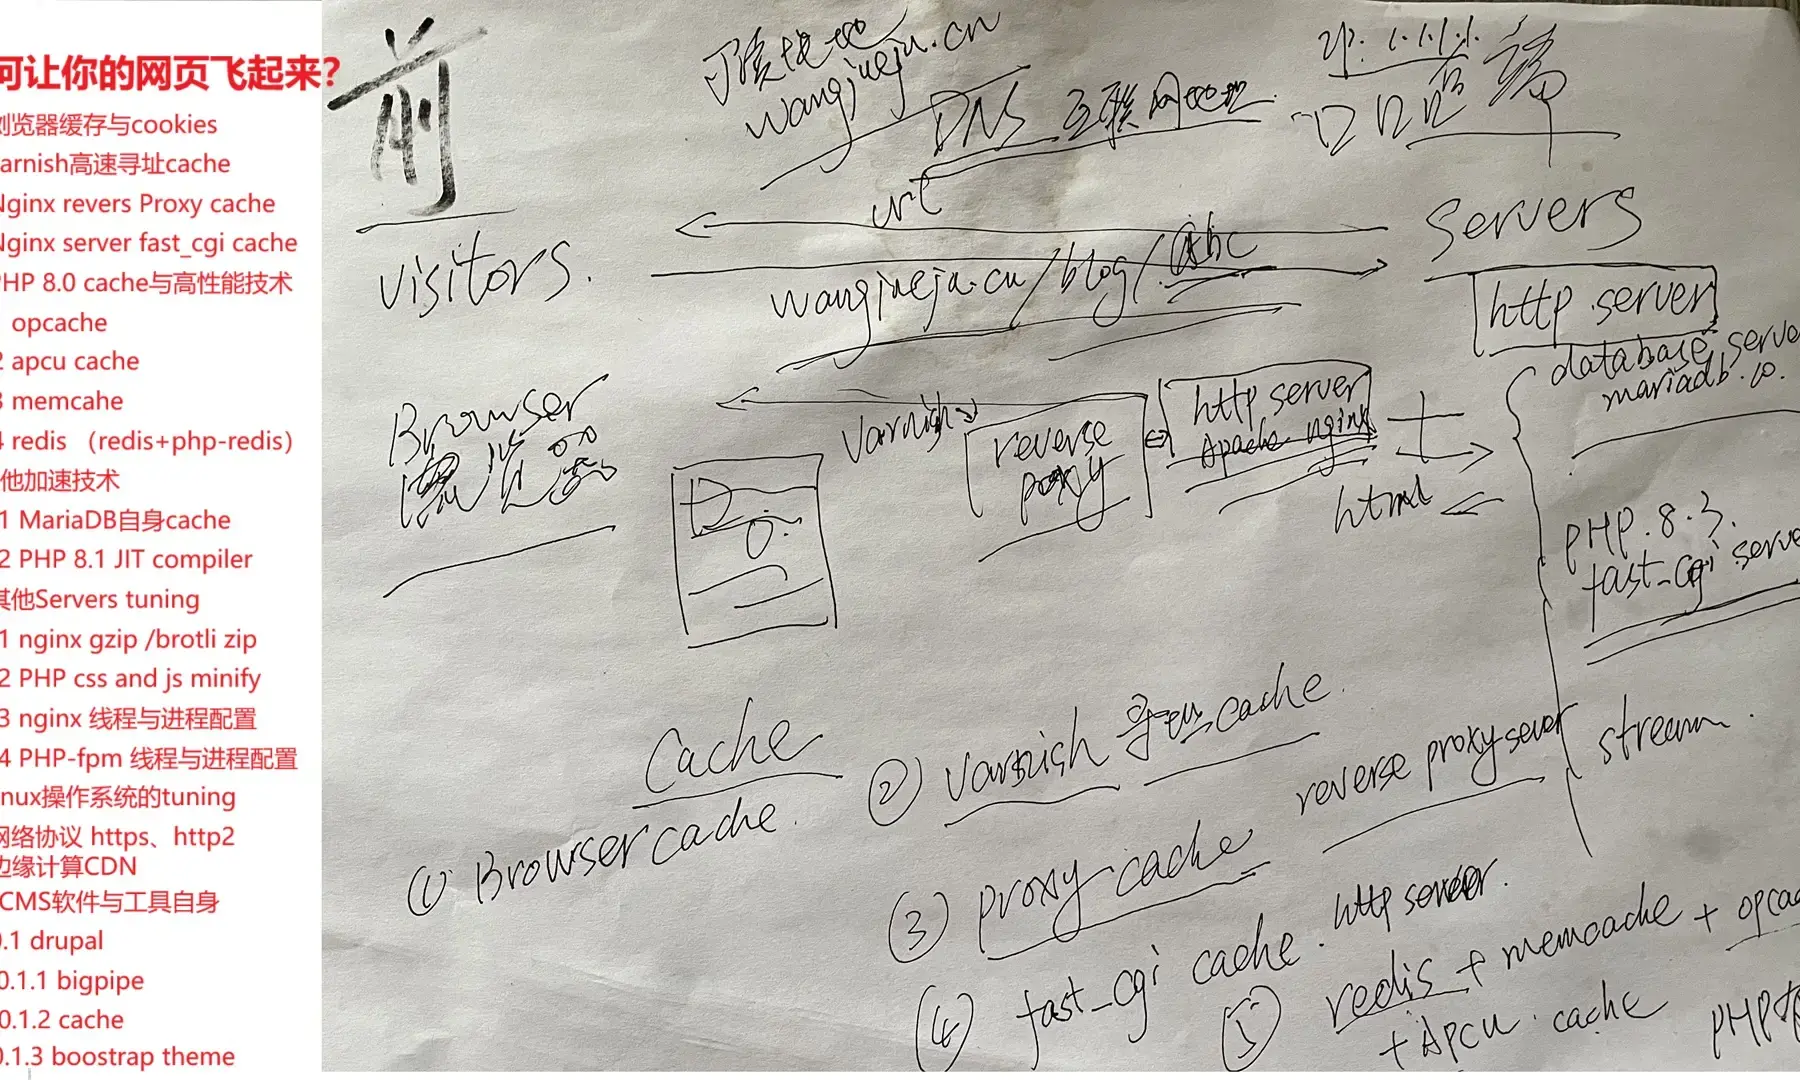 何让你的网页飞起来?
浏览器缓存与cookies
arnish高速寻址cache
Nginx revers Proxy cache
Nginx server fast_cgi cache
PHP 8.0 cache与高性能技术
opcache
2 apcu cache
3 memcahe
4 redis （redis+php-redis）
他加速技术
1 MariaDB自身cache
2 PHP 8.1 JIT compiler
其他Servers tuning
1 nginx gzip /brotli zip
2 PHP css and js minify
3 nginx 线程与进程配置
4 PHP-fpm 线程与进程配置
inux操作系统的tuning
网络协议 https、http2
边缘计算CDN
CMS软件与工具自身
0.1 drupal
0.1.1 bigpipe
0.1.2 cache
0.1.3 boostrap theme
前
wangjueju.cn
DNS 互联网地址
IP: 1.1.1.1
后端
visitors.
url
wangjueju.cn/blog/abc
servers
http server
database server
mariadb.10.
Browser
浏览器
varnish
reverse
proxy
http server
Apache nginx
html
PHP.8.3.
fast_cgi serve
stream.
Cache
① Browser cache.
② varnish 寻址 cache.
③ proxy cache
reverse proxy sever
④ fast_cgi cache. http server.
⑤ redis + memcache + opcac
+ APCU. cache
PHP